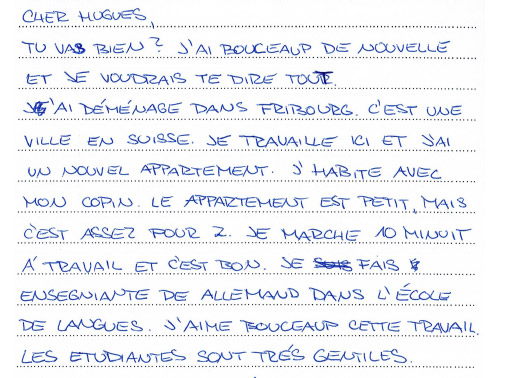 CHER HUGUES,
TU VAS BIEN ? J'AI BOUCEAUP DE NOUVELLE
ET JE VOUDRAIS TE DIRE TOUT.
J'AI DÉMÉNAGE DANS FRIBOURG. C'EST UNE
VILLE EN SUISSE. JE TRAVAILLE ICI ET J'AI
UN NOUVEL APPARTEMENT. J'HABITE AVEC
MON COPIN. LE APPARTEMENT EST PETIT, MAIS
C'EST ASSEZ POUR 2. JE MARCHE 10 MINUIT
Á TRAVAIL ET C'EST BON. JE FAIS
ENSEGNIANTE DE ALLEMAND DANS L'ÉCOLE
DE LANGUES. J'AIME BOUCEAUP CETTE TRAVAIL.
LES ETUDIANTES SONT TRÉS GENTILES.